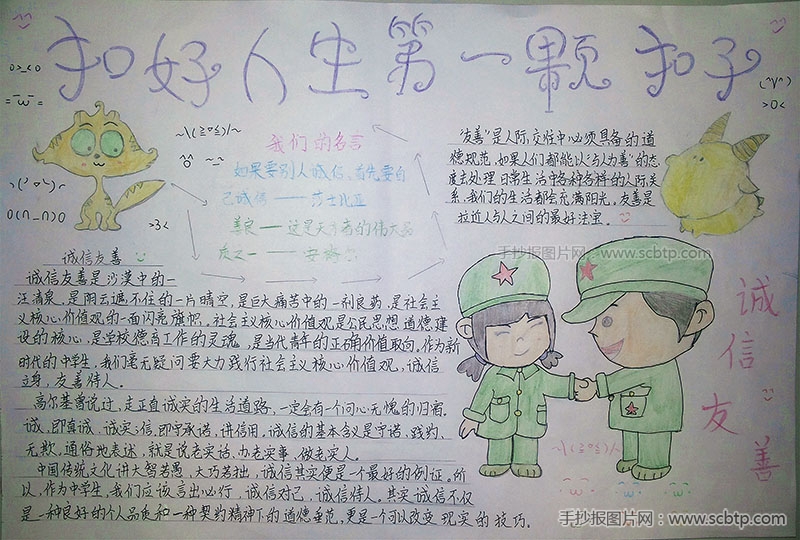 扣好人生第一颗扣子
我们的名言
如果要别人诚信，首先要自
己诚信——莎士比亚
善良——这是天才者的伟大品
质之一——安格尔
"友善"是人际交往中必须具备的道
德规范，如果人们都能以"与人为善"的态
度去处理日常生活中各种各样的人际关
系，我们的生活都会充满阳光。友善是
拉近人与人之间的最好法宝。
手抄报图片网：www.scbtp.com
诚信友善
诚信友善是沙漠中的一
汪清泉，是阴云遮不住的一片晴空，是巨大痛苦中的一剂良药，是社会主
义核心价值观的一面闪亮旗帜。社会主义核心价值观是公民思想道德建
设的核心，是学校德育工作的灵魂，是当代青年的正确价值取向。作为新
时代的中学生，我们毫无疑问要大力践行社会主义核心价值观，诚信
立身，友善待人。
高尔基曾说过，走正直诚实的生活道路，一定会有一个问心无愧的归宿。
诚，即真诚、诚实；信，即守承诺、讲信用。诚信的基本含义是守诺、践约、
无欺，通俗地表述，就是说老实话、办老实事、做老实人。
中国传统文化讲大智若愚，大巧若拙，诚信其实便是一个最好的例证。所
以，作为中学生，我们应该言出必行，诚信对己，诚信待人。其实诚信不仅
是一种良好的个人品质和一种契约精神下的道德垂范，更是一个可以改变现实的技巧。
诚信友善
手抄报图片网：www.scbtp.com